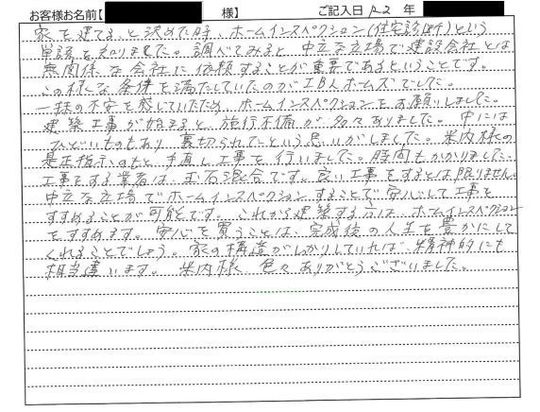 お客様お名前【 様】 ご記入日 R2 年
家を建てると決めた時、ホームインスペクション(住宅診断)という
単語を知りました。調べてみると中立な立場で建設会社とは
無関係な会社に依頼することが重要であるということです。
この様な条件を満たしていたのがエロ人ホームズでした。
一抹の不安を感じていたため、ホームインスペクションをお願いしました。
建築工事が始まると施行不備が多々ありました。中には
ひどいものもあり裏切られたという思いがしました。米内様の
是正指示のもと手直し工事を行いました。時間もかかりました。
工事をする業者は、玉石混合です。良い工事をするとは限りません。
中立な立場でホームインスペクションすることで安心して工事を
すすめることが可能です。これから建築する方は、ホームインスペクション
をすすめます。安心を買うことは、完成後の人生を豊かにして
くれることでしょう。家の構造がしっかりしていれば、精神的にも
相当違います。米内様 色々ありがとうございました。